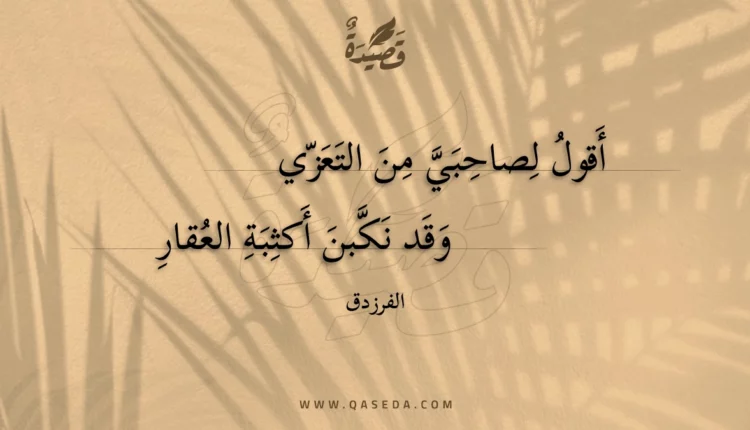 قَصِيْدَةٌ
أَقولُ لِصاحِبَيَّ مِنَ التَعَزّي
وَقَد نَكَّبنَ أَكثِبَةِ العُقارِ
الفرزدق
WWW.QASEDA.COM